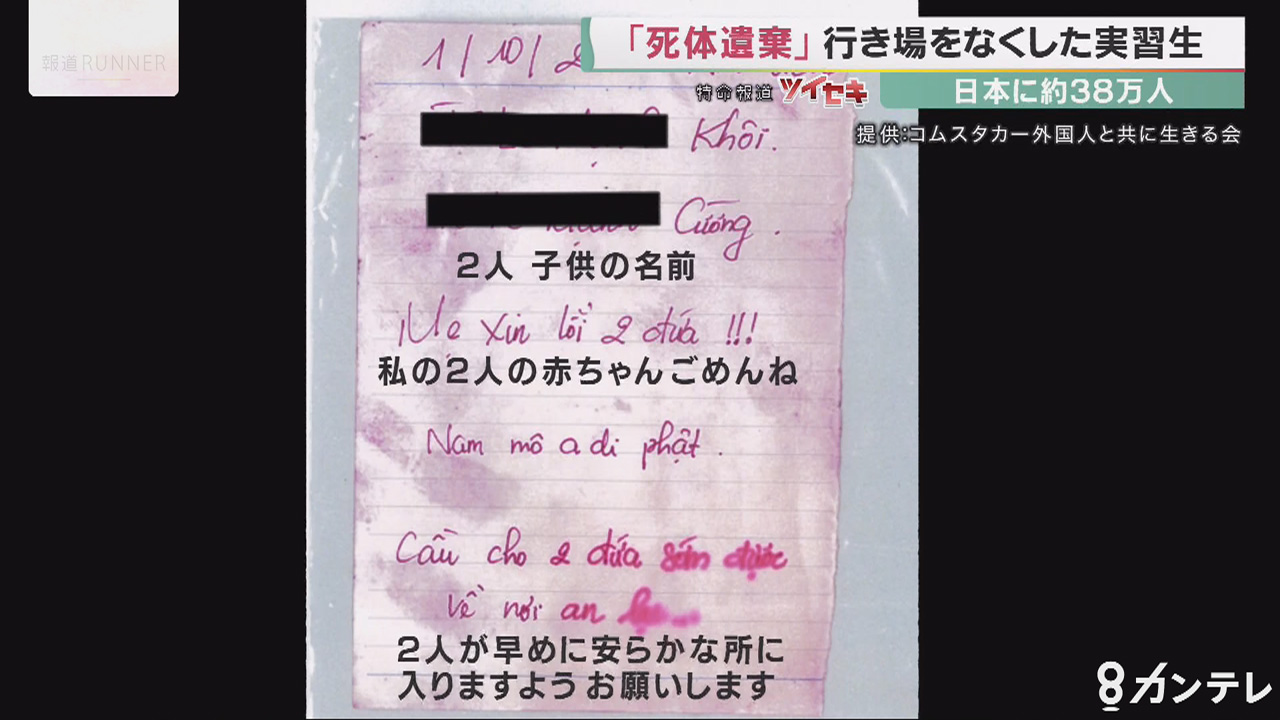 報道RUNNER
「死体遺棄」行き場をなくした実習生
特命報道 ツイセキ
日本に約38万人
提供:コムスタカー外国人と共に生きる会
1/10/2
Khôi.
Cường.
2人 子供の名前
Mẹ xin lỗi 2 đứa !!!
私の2人の赤ちゃんごめんね
Nam mô a di phật.
Cầu cho 2 đứa sớm được
Về nơi an
2人が早めに安らかな所に
入りますよう お願いします
8カンテレ